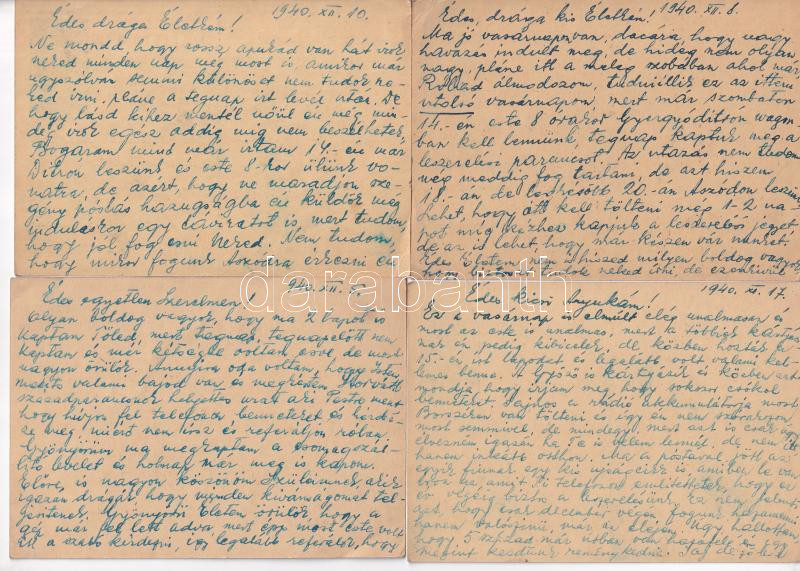 1940. XII. 10.
Édes drága Életkém!
Ne mondd, hogy rossz apukád van hát írok
neked minden nap még most is, amikor már
úgyszólván semmi különöset nem tudok ne-
ked írni, pláne a tegnap írt levél után. De
hogy lásd kihez mentél nőül én még min-
dég írok egész addig míg nem beszélhetek
Bogaram mint már írtam 14.-én már
Ditrón leszünk, és este 8-kor ülünk vo-
natra, de azért, hogy ne maradjon sze-
gény postás hazugságba én küldök még
induláskor egy táviratot is mert tudom
hogy jól fog esni Neked. Nem tudom,
hogy mikor fogunk Aszódra érkezni én
1940. XII. 8.
Édes, drága kis Életkém!
Ma jó vasárnapom van, dacára, hogy nagy
havazás indult meg, de hideg nem olyan
nagy, pláne itt a meleg szobában ahol már
Rólad álmodozom, tudniillik ez az itteni
utolsó vasárnapom, mert már szombaton
14.-én este 8 órakor Gyergyóditrón wagon
ban kell lennünk, tegnap kaptuk meg a
leszerelési parancsot. Az utazás nem tudom
még meddig fog tartani, de azt hiszem
18.-án de legkésőbb 20.-án Aszódon leszünk
Lehet, hogy ott kell tölteni még 1-2 na-
pot míg kézhez kapjuk a leszerelő jegyet,
de az is lehet, hogy már készen vár minket.
Édes Életem, Te hiszed milyen boldog vagyok
1940. XII. 5.
Édes egyetlen Szerelmem!
Olyan boldog vagyok, hogy ma 2 lapot is
kaptam Tőled, mert tegnap, tegnapelőtt nem
kaptam és már kétségbe voltam esve, de most
nagyon örülök. Annyira oda voltam, hogy Isten
ments valami bajod van és megkértem Horváth
századparancsnok helyettes urat aki Pestre ment
hogy hívjon fel telefonon benneteket és kérdez-
ze meg, miért nem írsz és referáljon rólam.
Gyönyöröm ma megkaptam a csomagszál-
lító levelet és holnap már meg is kapom.
Előre, is nagyon köszönöm Szüleimnek akik
igazán drágák hogy minden kívánságomat tel-
jesítenek. Gyönyörű Életem örülök, hogy a
gép már fel lett adva mert épp most este volt
itt a szabó kérdezni, így legalább referálok, hogy
1940. XI. 17.
Édes kicsi Anyukám!
Ez a vasárnap is elmúlt elég unalmasan és
most az este is unalmas, mert a többiek kártyáz-
nak én pedig kibicelek, de közben hozták a
15.-én írt lapodat és legalább volt valami kel-
lemes benne. A Győző is kártyázik és közben azt
mondja, hogy írjam meg hogy sokszor csókol
benneteket. Sajnos a rádió akkumulátorja most
Borszéken van tölteni és így én nem szórakozom
most semmivel, de mindegy, mert azt is csak úgy
élvezném igazán ha Te is velem lennél, de nem itt
hanem inkább otthon. Ma a postával jött az
egyik fiúnak egy kis újságcikk is, amiben le van
írva az, amit Ti telefonon említettetek, hogy az
év végéig bízva a leszerelésünk. Ez nem jelenti
azt, hogy csak december végén fogunk hazamenni
hanem valószínű már az elején. Úgy hallottam
hogy 5 század már útban van hazafelé én egy
megint kezdünk reménykedni.
darabanth